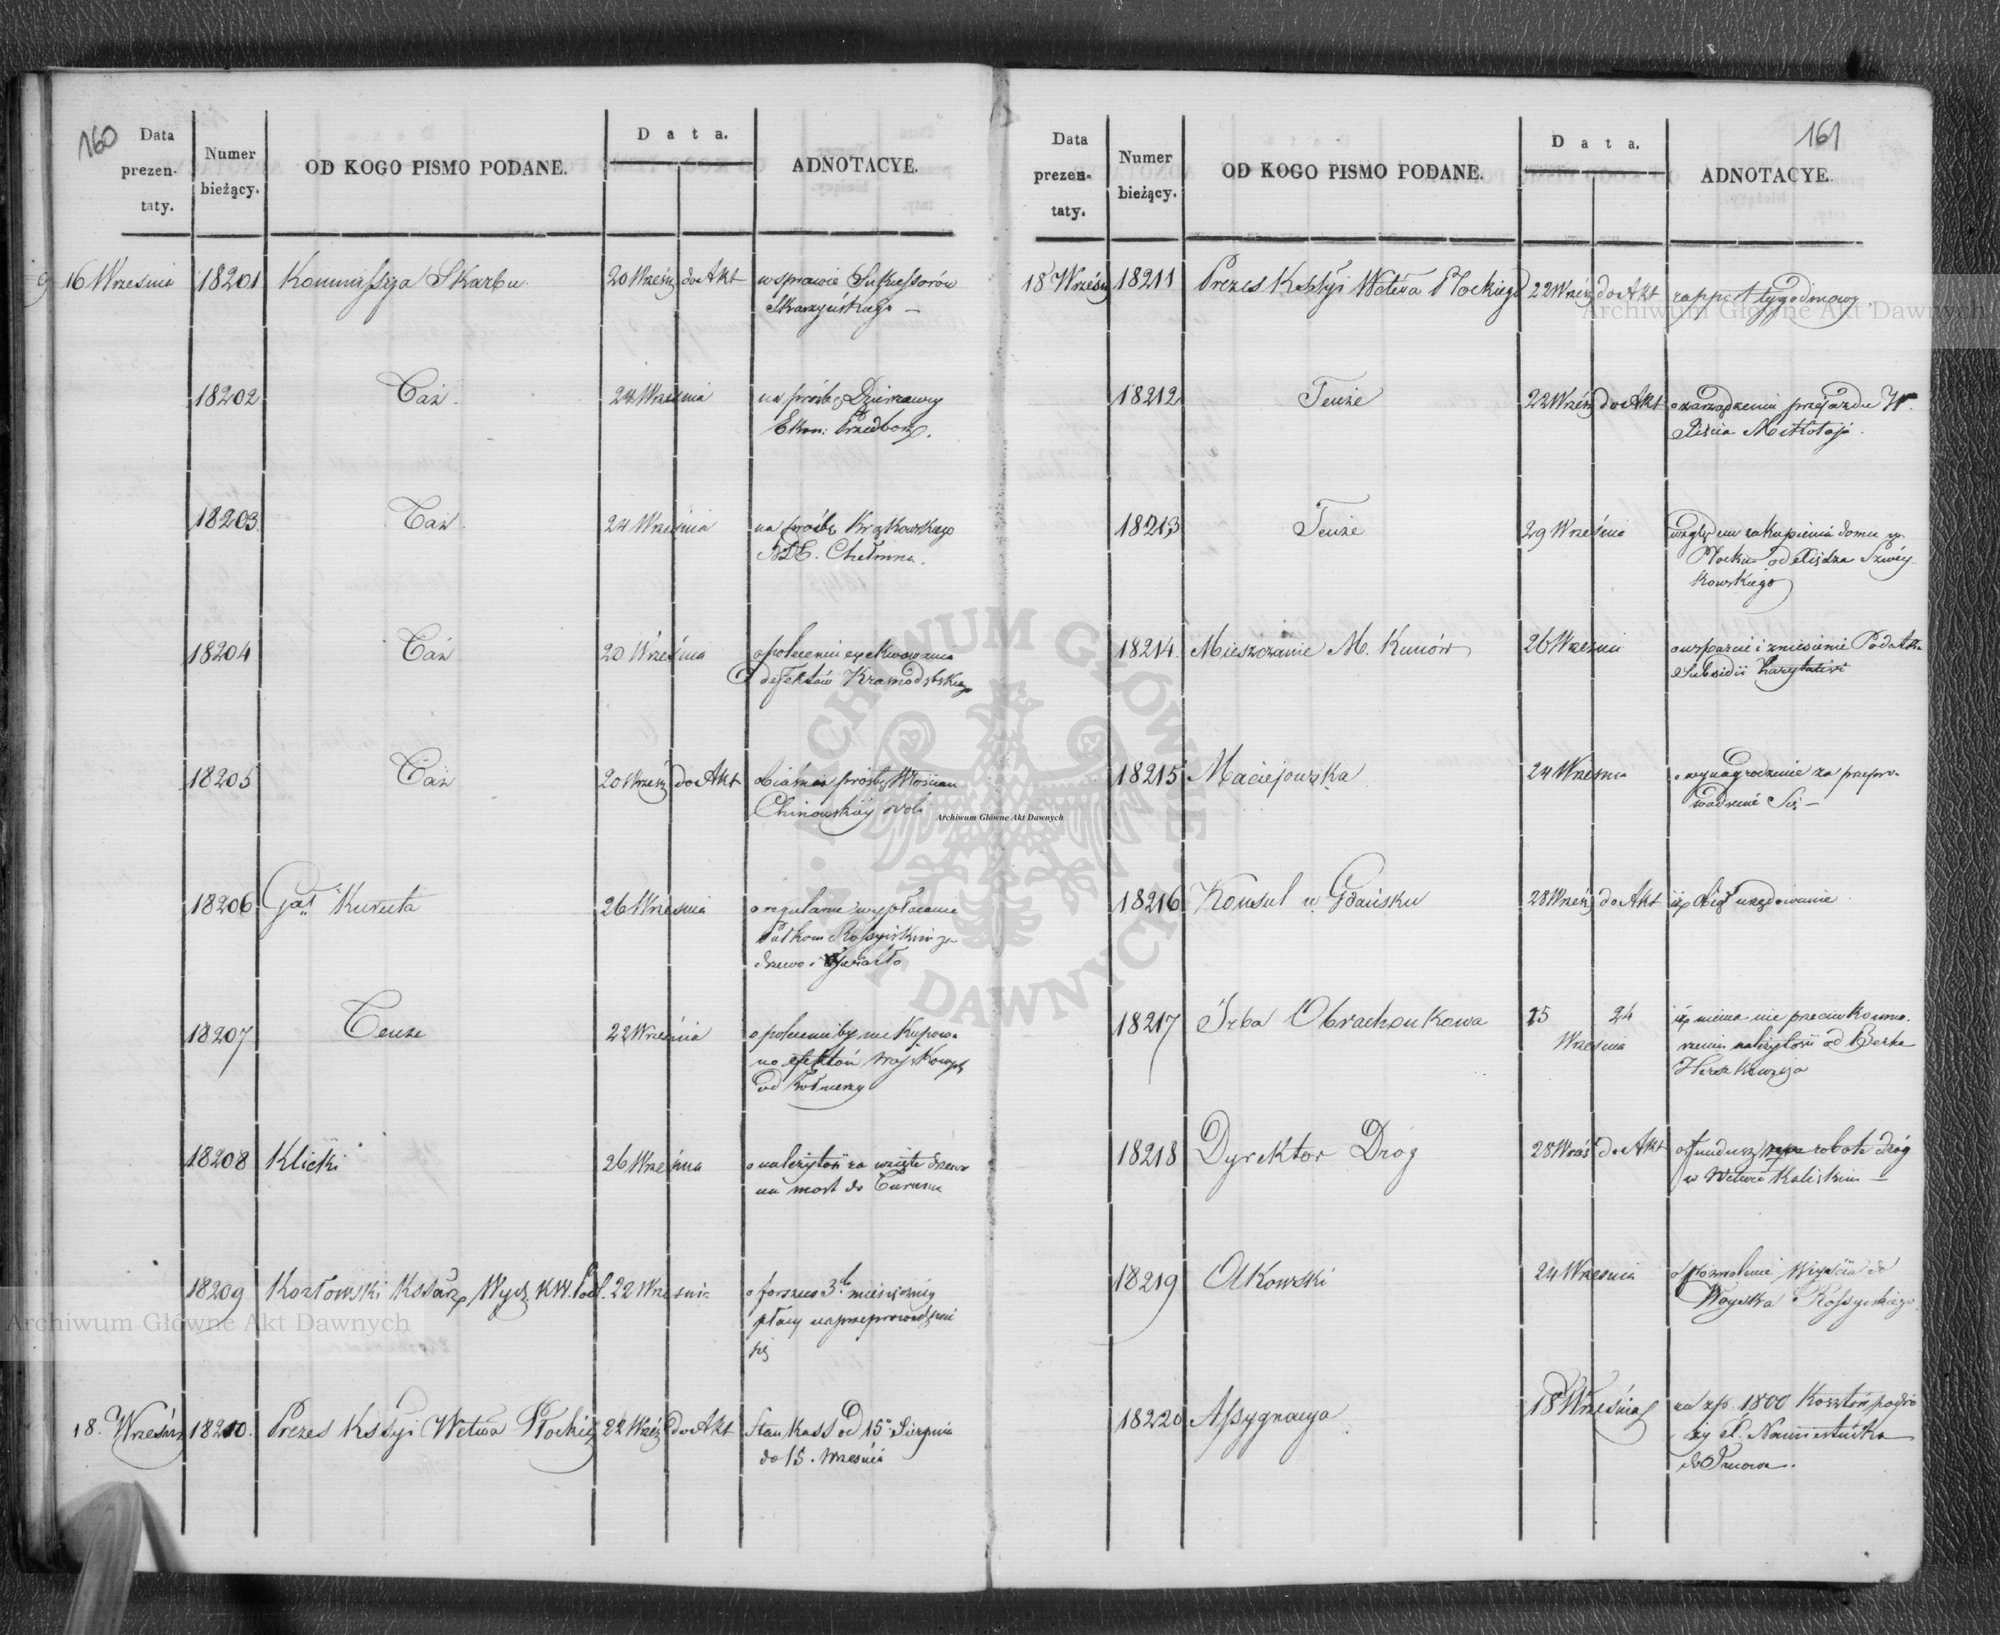 160
Data prezen- taty.
Numer bieżący.
OD KOGO PISMO PODANE.
Data.
ADNOTACYE.
16 Wrzesnia 18201 Kommissya Skarbu 20 Wrześ do Akt w sprawie Sukcessorów
Skarzyńskiego —
18202 Taż. 24 Wrzesnia na prosbę Dzierzawcy
Ekon: Przedborz.
18203 Taż. 24 Września na prośbę
Chełmna.
18204 Taż 20 Września o poleceniu exekwowania
defektów
18205 Taż 20 Wrześ do Akt prosby Włościan
Chinowskiéy woli
18206 Kuruta 26 Wrzesnia o regularne wypłacanie
Pułkom Rossyiskim za
drzewo i światło
18207 Tenże 22 Września o polecenie by nie kupowa-
no efektów Woyskowych
od Żołnierzy
18208 Klicki 26 Września o należytość za wzięte drzewo
na most do Torunia
18209 Kozłowski 22 Wrzesnia o forszus 3ch miesięczney
płacy na przeprowadzenie
się
18. Wrześn 18210. Prezes Kssyi Wctwa Płockie 22 Wrześ do Akt Stan Kass od 15o Sierpnia
do 15. Wrzesnia
161
Data prezen- taty.
Numer bieżący.
OD KOGO PISMO PODANE.
Data.
ADNOTACYE.
18 Wrześn 18211 Prezes Kssyi Wctwa Płockiego 22 Wrześ do Akt rapport tygodniowy
18212 Tenże 22 Wrześ do Akt o zarządzeniu przejazdu W.
Xięcia Mikołaja.
18213 Tenże 29 Września względem zakupienia domu w
Płocku od Xiędza
kowskiego
18214. Mieszczanie M. Kunów 26 Wrzesnia o wsparcie i zniesienie Podatku
Subsidii Karytativi
18215 Maciejowska 24 Wrzesnia o wynagrodzenie za przepro-
wadzenie Się —
18216 Konsul w Gdańsku 28 Wrześ do Akt iż objął urzędowanie
18217 Izba Obrachonkowa 25 24 Wrzesnia iż niema nic przeciwko umo-
rzeniu należytości od Berka
18218 Dyrektor Dróg 28 Wrześ do Akt o fundusz na robote dróg
w Wctwie Kaliskim —
18219 Olkowski 24 Wrzesnia o pozwolenie Wyiścia do
Woyska Rossyiskiego.
18220 Assygnacya 18 Września na zp. 1800 Kosztów podró
ży X. Namiestnika
do
Archiwum Główne Akt Dawnych
Archiwum Główne Akt Dawnych
Archiwum Główne Akt Dawnych
ARCHIWUM GŁÓWNE AKT DAWNYCH